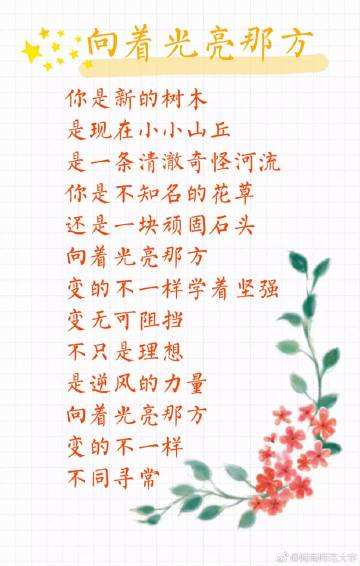 向着光亮那方
你是新的树木
是现在小小山丘
是一条清澈奇怪河流
你是不知名的花草
还是一块顽固石头
向着光亮那方
变的不一样学着坚强
变无可阻挡
不只是理想
是逆风的力量
向着光亮那方
变的不一样
不同寻常